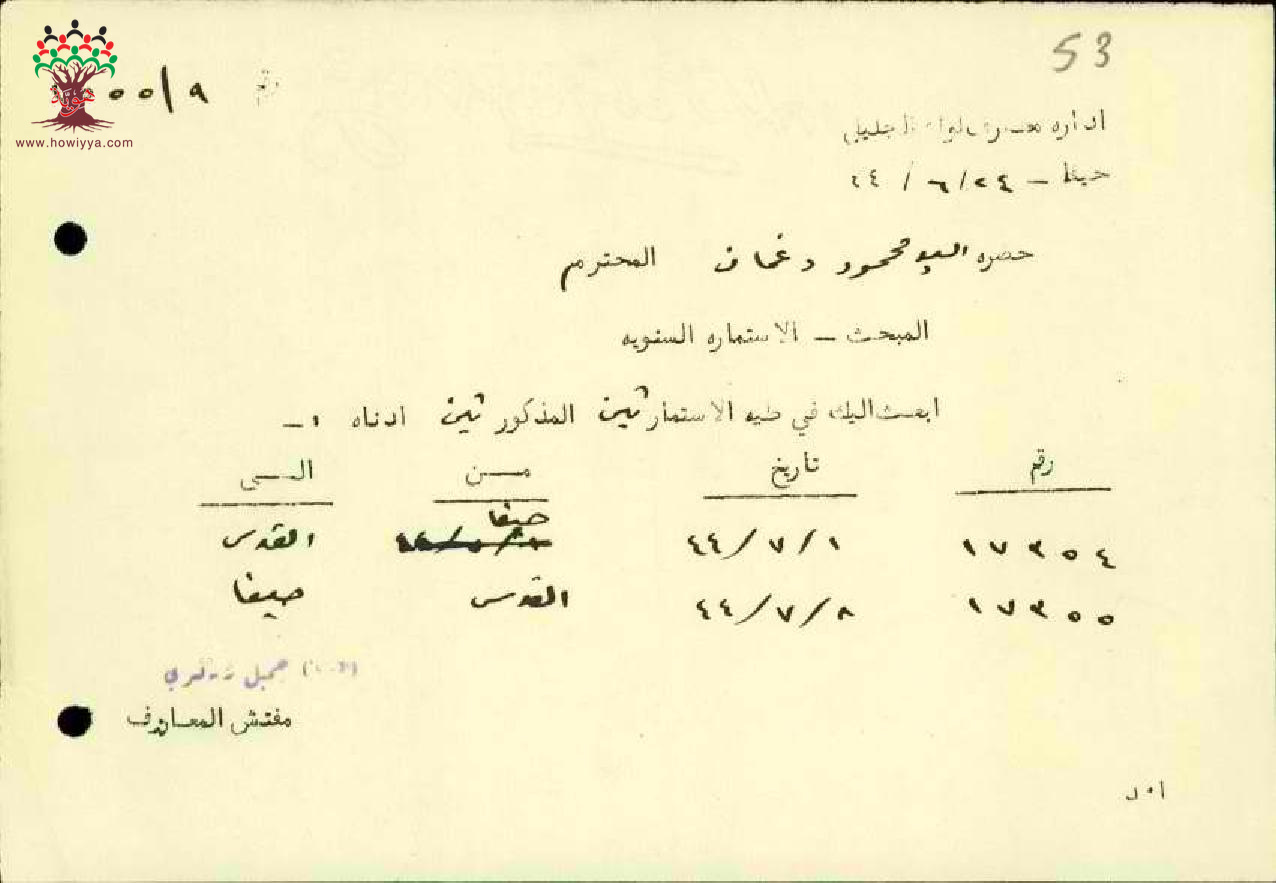 53
رقم ٥٥/٩
www.howiyya.com
اداره معارف لواء الجليل
حيفا – ٢٤/٦/٤٤
حضره السيد محمود دغمان المحترم
المبحث – الاستماره السنويه
ابعث اليك في طيه الاستمارتين المذكورتين ادناه :-
رقم تاريخ مــن الــى
١٧٣٥٤ ٤٤/٧/١ حيفا القدس
١٧٣٥٥ ٤٤/٧/٨ القدس حيفا
جميل
مفتش المعارف